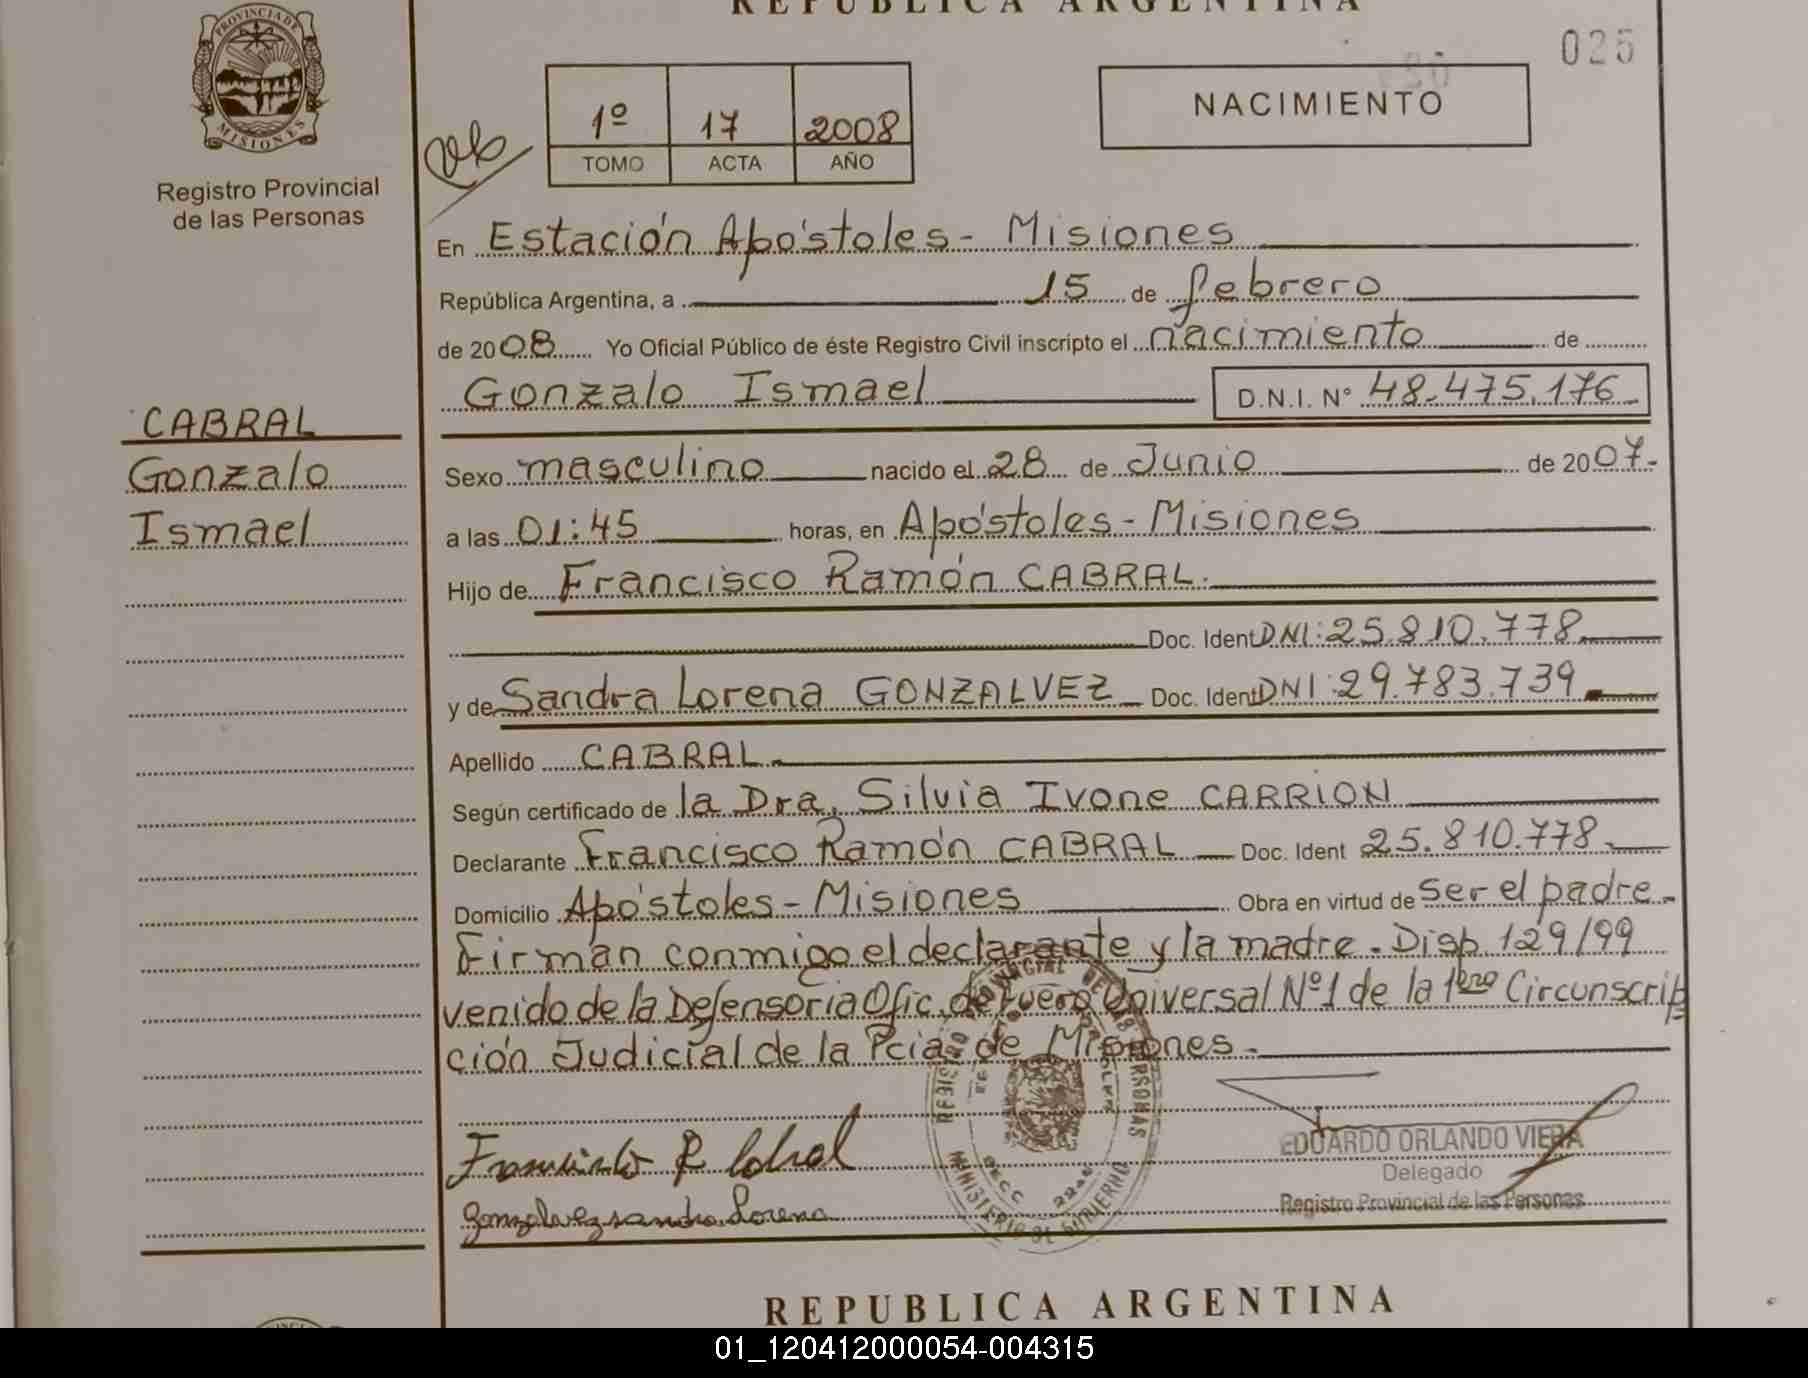 REPUBLICA ARGENTINA
025
PROVINCIA DE
MISIONES
Registro Provincial
de las Personas
1º 17 2008
TOMO ACTA AÑO
NACIMIENTO
En Estación Apóstoles - Misiones
República Argentina, a 15 de febrero
de 2008 Yo Oficial Público de éste Registro Civil inscripto el nacimiento de
Gonzalo Ismael D.N.I. Nº 48.475.176
CABRAL
Gonzalo
Ismael
Sexo masculino nacido el 28 de Junio de 2007.-
a las 01:45 horas, en Apóstoles - Misiones
Hijo de Francisco Ramón CABRAL.
Doc. Ident DNI: 25.810.778
y de Sandra Lorena GONZALVEZ Doc. Ident DNI: 29.783.739
Apellido CABRAL
Según certificado de la Dra. Silvia Ivone CARRION
Declarante Francisco Ramón CABRAL Doc. Ident 25.810.778.
Domicilio Apóstoles - Misiones Obra en virtud de ser el padre.-
Firman conmigo el declarante y la madre. Disp. 129/99
venido de la Defensoria Ofic. de Fuero Universal Nº1 de la 1era Circunscrip
ción Judicial de la Pcia. de Misiones.
REGISTRO PROVINCIAL DE LAS PERSONAS
MINISTERIO DE GOBIERNO
Francisco R Cabral
Gonzalvez sandra Lorena
EDUARDO ORLANDO VIERA
Delegado
Registro Provincial de las Personas
REPUBLICA ARGENTINA
01_120412000054-004315